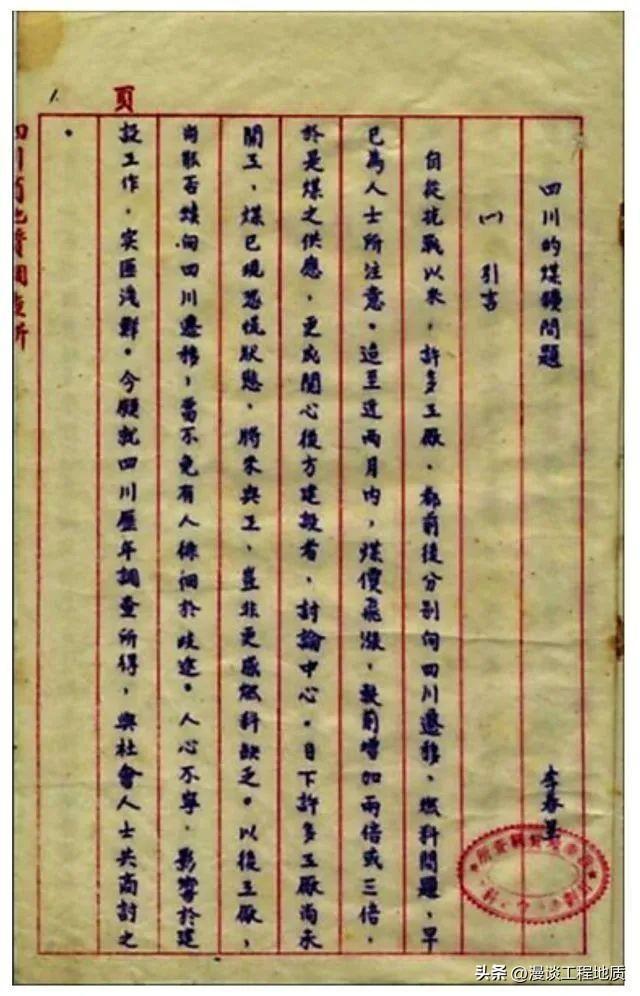 四川的煤鑛問題
李春昱
(一) 引言
自從抗戰以來，許多工廠，都前後分别向四川遷移，燃料問題，早
已為人士所注意。迨至近兩月内，煤價飛漲，較前增加兩倍或三倍，
於是煤之供應，更成關心後方建設者，討論中心。目下許多工廠尚未
開工，煤已現恐慌狀態，將來與工，豈非更感燃料缺乏。以後工廠，
尚能否續向四川遷移，當不免有人徘徊於歧途。人心不寧，影響於建
設工作，实匪淺鮮。今願就四川歷年調查所得，與社會人士共商討之
。
頁
1.
四川省地質調查所
头条 @漫谈工程地质